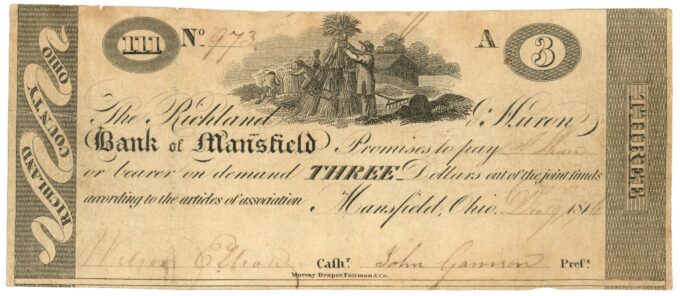 111 No 973 A 3
RICHLAND COUNTY OHIO
The Richland & Huron
Bank of Mansfield Promises to pay
or bearer on demand THREE Dollars out of the joint funds
according to the articles of association. Mansfield, Ohio. Dec 9 1816
Wilson Cashr. John Garrison Prest.
Murray Draper Fairman & Co.
THREE